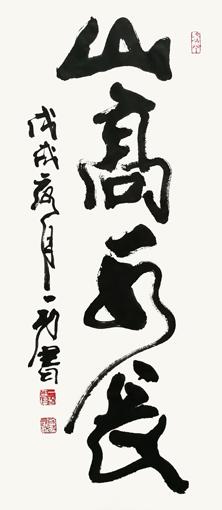 山高水長
戊戌夏月一書